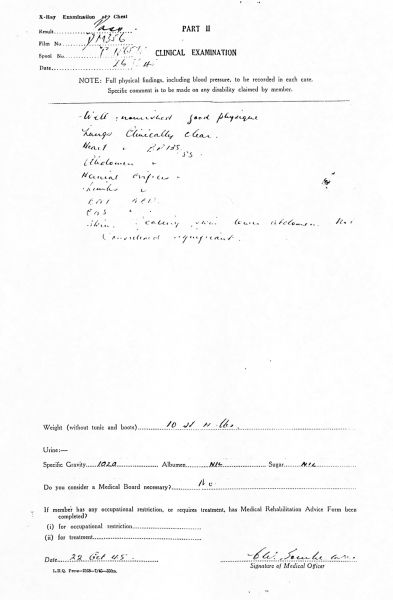 X-Ray Examination of Chest
PART II
Result
Film No.
Spool No.
CLINICAL EXAMINATION
Date
NOTE: Full physical findings, including blood pressure, to be recorded in each case.
Specific comment is to be made on any disability claimed by member.
Well nourished good physique
Lungs Clinically clear.
Heart " BP 135
Abdomen "
Hernial Orifices "
Limbs "
Skin. lower abdomen. Not
Considered significant.
Weight (without tunic and boots) 10 st 11 lbs.
Urine:—
Specific Gravity 1020 Albumen Nil Sugar Nil
Do you consider a Medical Board necessary? No
If member has any occupational restriction, or requires treatment, has Medical Rehabilitation Advice Form been
completed?
(i) for occupational restriction
(ii) for treatment
Date 22 Oct 45
Signature of Medical Officer